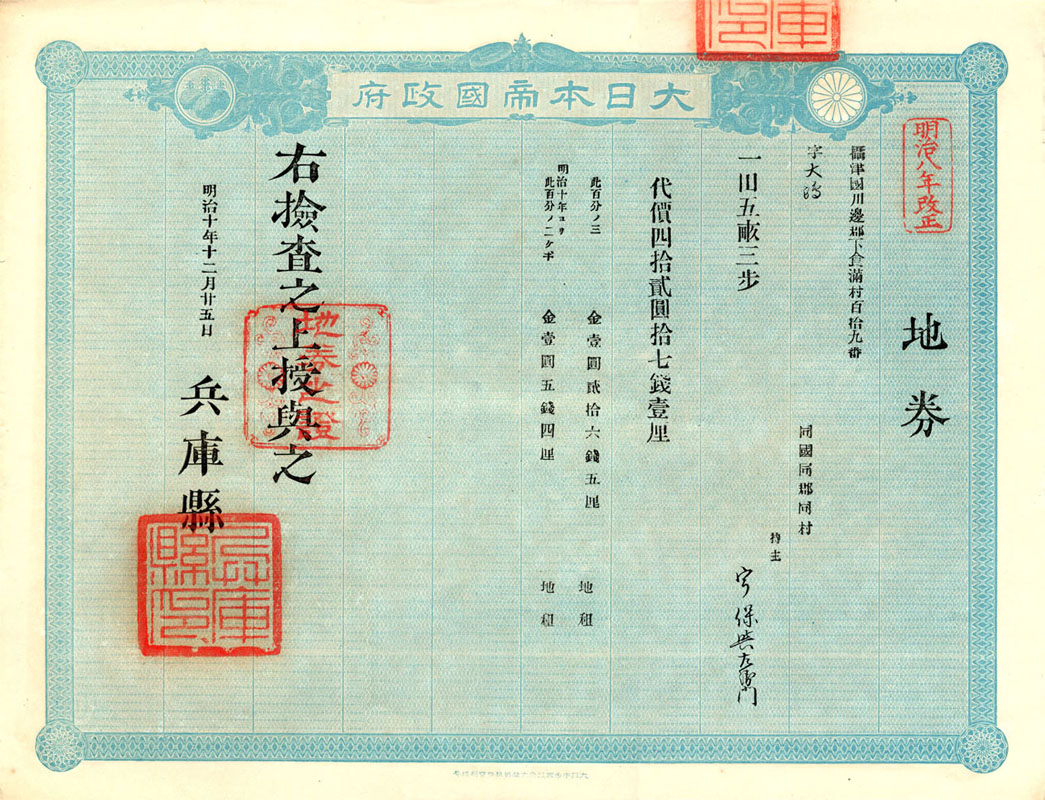 大日本帝國政府
明治八年改正
地券
攝津國川邊郡下食滿村百拾九番
字大
同國同郡同村
持主
保兵左衛門
一田五畝三步
代價四拾貳圓拾七錢壹厘
此百分ノ三 金壹圓貳拾六錢五厘 地租
明治十年ヨリ
此百分ノ二ケ半 金壹圓五錢四厘 地租
右撿査之上授與之
地券之證
明治十年十二月廿五日
兵庫縣
兵庫縣印